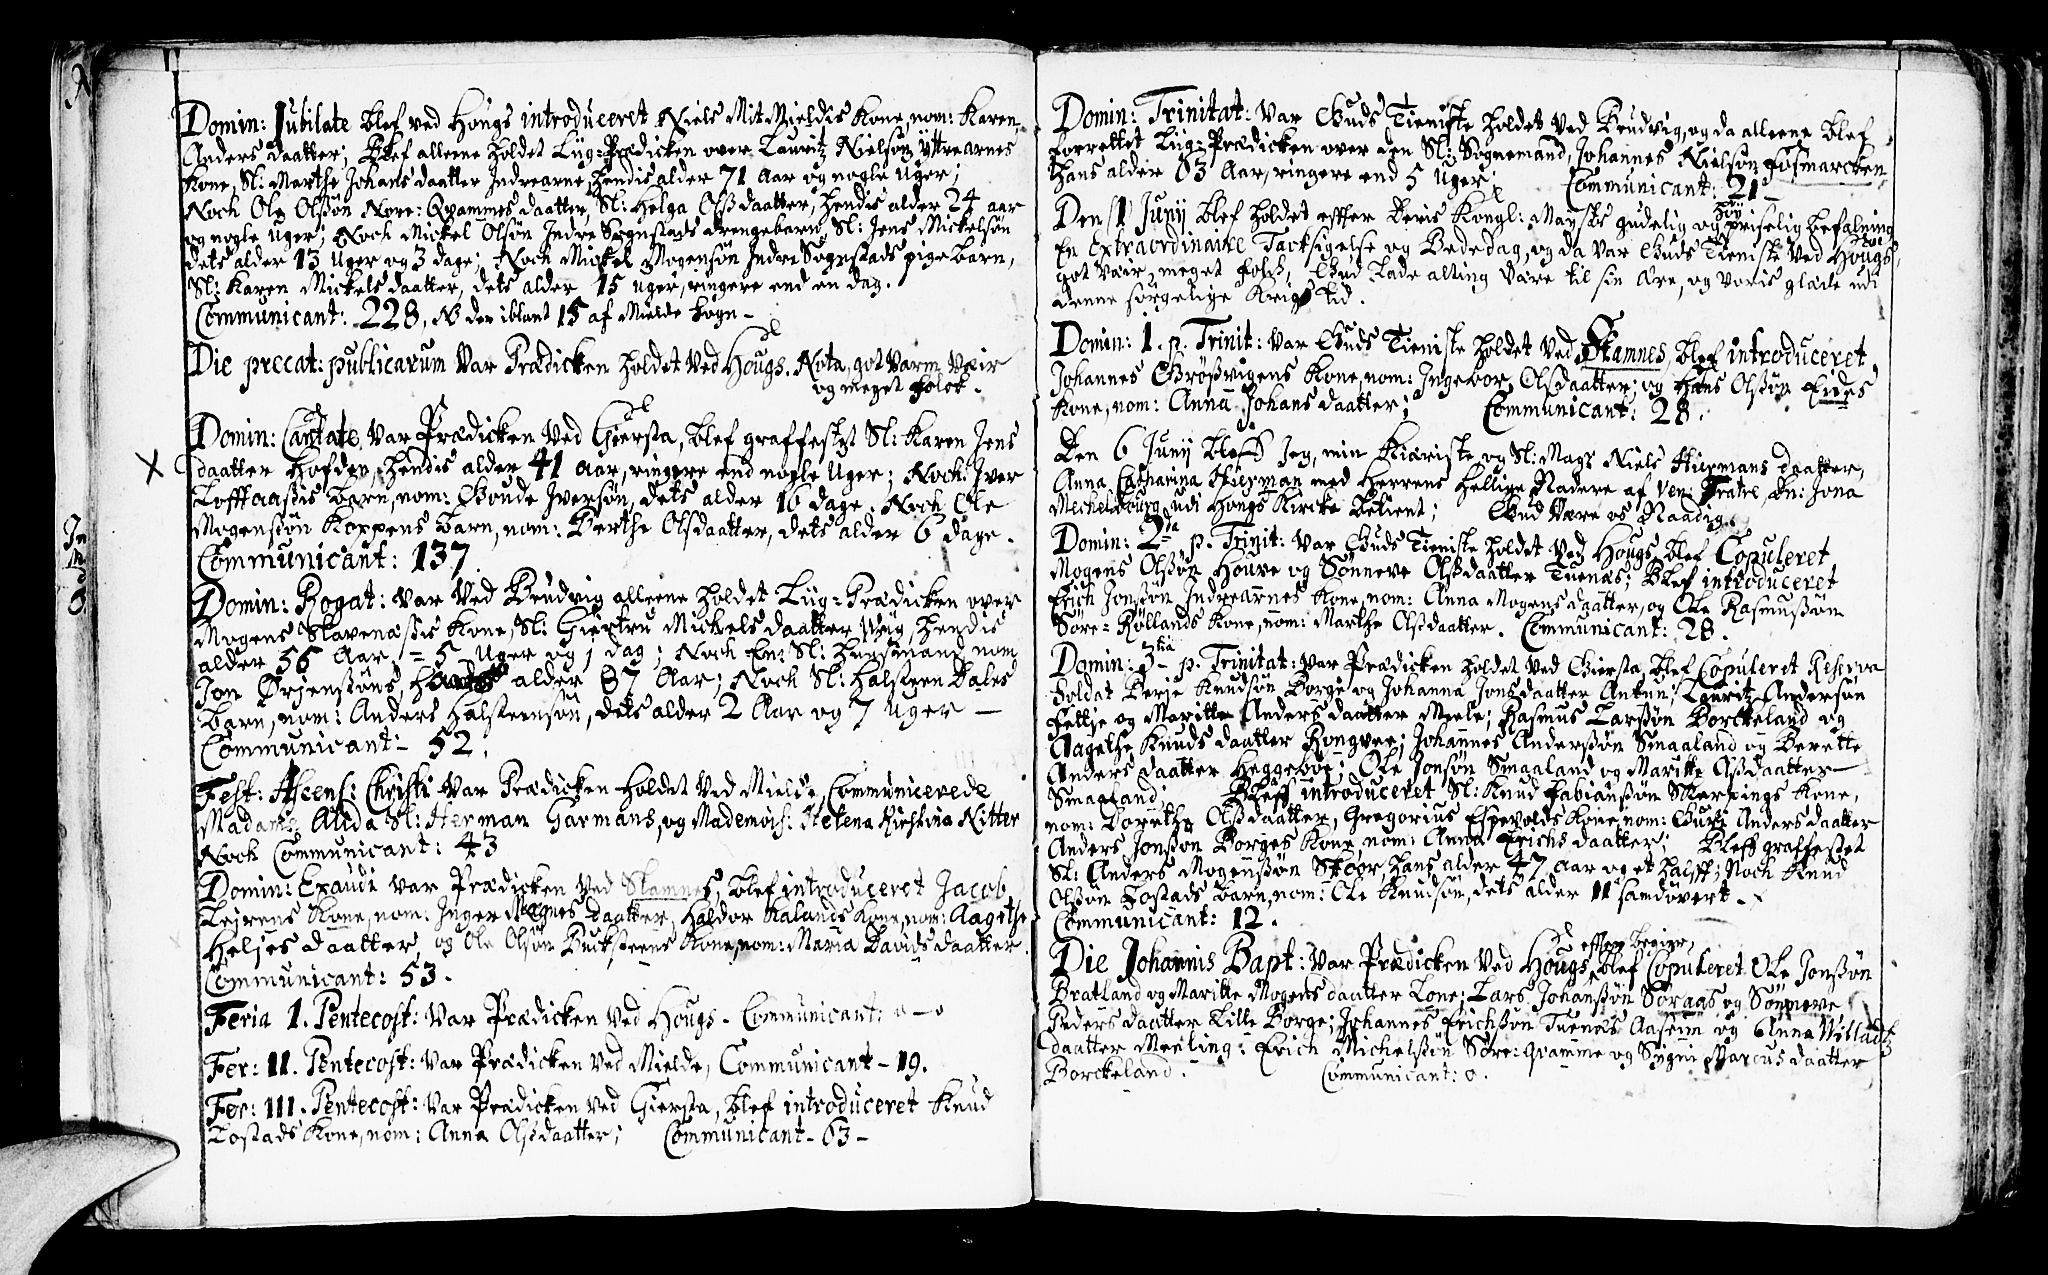 Domin: Jubilate blef ved Hougs introduceret Niels Mit Mieldis Kone, nom: Karen
Anders daatter; Blef alleene holdet Liig-Prædicken over Lauritz Nielsøn Yttrearnes
Kone, Sl: Marthe Johans daatter Indrearne, hendis alder 71 Aar og nogle Uger;
Noch Ole Olsøn Nore-Qvammes daatter, Sl: Helga Olsdaatter, hendis alder 24 aar
og nogle Uger; Noch Mickel Olsøn Indre Sognstads drengebarn, Sl: Jens Mickelsøn
dets alder 13 Uger og 3 dage; Noch Mickel Mogensøn Indre Sognstads pigebarn,
Sl: Karen Mickels daatter, dets alder 15 uger, ringere end en dag.
Communicant: 228, NB der iblant 15 af Mielde Sogn –
Die precat: publicarum var Prædicken holdet ved Hougs. Nota, got varm Væir
og meget folck.
Domin: Cantate var Prædicken ved Giersta, blef graffestet Sl: Karen Jens
daatter Hofden, hendis alder 41 aar, ringere end nogle Uger; Noch Iver
Lofftaassis barn, nom: Goude Iversøn, dets alder 16 dage. Noch Ole
Mogenssøn Koppens barn, nom: Berthe Olsdaatter, dets alder 6 dage.
Communicant: 137.
Domin: Rogat: var ved Brudvig alleene holdet Liig-Prædicken over
Mogens Stavenæssis Kone, Sl: Giertru Mickels daatter, hendis
alder 56 Aar = 5 Uger og 1 dag; Noch En Sl: huusmand nom
Jon Ørjenssøns, alder 87 Aar; Noch Sl: Halsteen Dales
barn, nom: Anders Halsteensøn, dets alder 2 Aar og 7 Uger –
Communicant – 52.
Fest: Ascens: Christi var Prædicken holdet ved Mielde, Communicerede
Madame Alida Sl: Herman Garmans, og Mademois: Helena Kirstina Nitter
Noch Communicant: 43
Domin: Exaudi var Prædicken ved Stamnes, blef introduceret Jacob
Leirens Kone, nom: Inger Magnes daatter, Haldor Kalands Kone, nom: Aagethe
Heljes daatter, og Ole Olsøn Bucksteens Kone, nom: Maria Davids daatter.
Communicant: 53.
Feria I. Pentecost: var Prædicken ved Hougs. Communicant: o – o
Fer: II. Pentecost: var Prædicken ved Mielde, Communicant – 19.
Fer: III. Pentecost: var Prædicken ved Giersta, blef introduceret Knud
Tostads Kone, nom: Anna Olsdaatter; Communicant – 63 –
Domin: Trinitat: var Guds Tieniste holdet ved Brudvig, og da alleene blef
forrettet Liig-Prædicken over den Sl: Sognemand, Johannes Nielsøn Fossmarcken
hans alder 63 Aar, ringere end 5 Uger. Communicant: 21 –
Den 1 Junij blef holdet effter Deris Kongl: Mayts gudelig og høypriselig befalning
En Extraordinaire Tacksigelse og Bededag, og da var Guds Tieniste ved Hougs,
got væir, meget folck, Gud lade alting være til sin ære, og voris glæde udi
denne sørgelige Krigs tid.
Domin: 1. p. Trinit: var Guds Tieniste holdet ved Stamnes, blef introduceret
Johannes Grøssvigens Kone, nom: Ingebor Olssdaatter; og Hans Olssøn Eides
Kone, nom: Anna Johans daatter; Communicant: 28.
Den 6 Junij blef Jeg, min Kiæriste og Sl: Mags Niels Hiermans daatter,
Anna Catharina Hierman med Herrens hellige Nadere af Ven: Fratre, Dn: Jona
Mechelbourg udi Hougs Kircke betient; Gud være os Naadig.
Domin: 2da p. Trinit: var Guds Tieniste holdet ved Hougs, blef Copuleret
Mogens Olssøn Houre og Sønneve Olssdaatter Tuenæs; Blef introduceret
Erich Jonssøn Indrearnes Kone, nom: Anna Mogens daatter, og Ole Rasmussøn
Søre-Røllands Kone, nom: Marthe Olssdaatter. Communicant: 28.
Domin: 3tia p. Trinitat: var Prædicken holdet ved Giersta, blef Copuleret Reserva
Soldat Berje Knudsøn Borge og Johanna Jons daatter Antun; Lauritz Andersøn
Fettje og Maritte Anders daatter Miele; Rasmus Larssøn Borckeland og
Aagethe Knuds daatter Rongvee; Johannes Anderssøn Smaaland og Berette
Anders daatter Heggebøe; Ole Jonsøn Smaaland og Maritte Olssdaatter
Smaaland; Bleff introduceret Sl: Knud Fabianssøn Skerpings Kone,
nom: Dorethe Olssdaatter, Gregorius Espevolds Kone, nom: Guri Anders daatter
Anders Jonssøn Borges Kone, nom: Anna Erichs daatter; Bleff graffestet
Sl: Anders Mogenssøn Skoor, hans alder 47 Aar og et halff; Noch Knud
Olssøn Tostads barn, nom: Ole Knudsøn, dets alder 11 samdøvert –
Communicant: 12.
Die Johannis Bapt: var Prædicken ved Hougs, effter begier, blef Copuleret Ole Jonssøn
Bratland og Maritte Mogens daatter Tone; Lars Johanssøn Søraas og Sønneve
Peders daatter Lille Borge; Johannes Erichssøn Tuenæs Aaseim og Anna Willads
daatter Meeling; Erich Michelssøn Søre-Qvamme og Sygni Marcus daatter
Borckeland. Communicant: o.